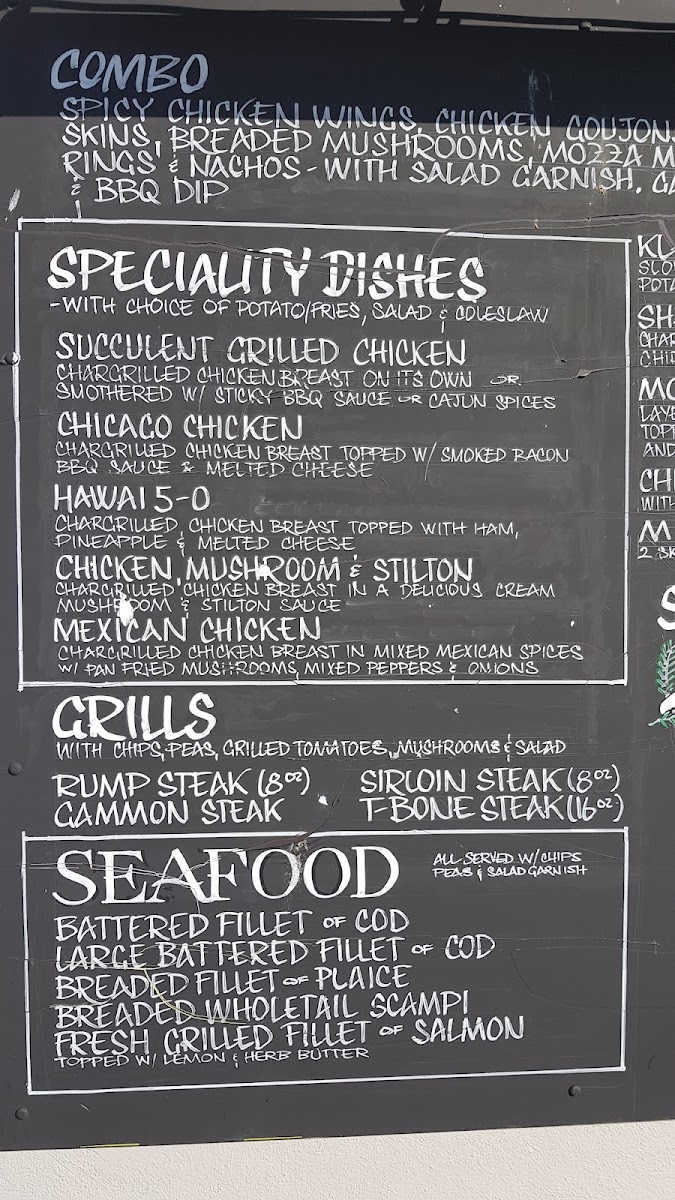 COMBO
SPICY CHICKEN WINGS, CHICKEN GOUJON
SKINS, BREADED MUSHROOMS, MOZZA M
RINGS & NACHOS - WITH SALAD GARNISH, GA
& BBQ DIP
SPECIALITY DISHES
-WITH CHOICE OF POTATO/FRIES, SALAD & COLESLAW
SUCCULENT GRILLED CHICKEN
CHARGRILLED CHICKEN BREAST ON ITS OWN OR
SMOTHERED W/ STICKY BBQ SAUCE OR CAJUN SPICES
CHICAGO CHICKEN
CHARGRILLED CHICKEN BREAST TOPPED W/ SMOKED BACON
BBQ SAUCE & MELTED CHEESE
HAWAI 5-0
CHARGRILLED CHICKEN BREAST TOPPED WITH HAM,
PINEAPPLE & MELTED CHEESE
CHICKEN, MUSHROOM & STILTON
CHARGRILLED CHICKEN BREAST IN A DELICIOUS CREAM
MUSHROOM & STILTON SAUCE
MEXICAN CHICKEN
CHARGRILLED CHICKEN BREAST IN MIXED MEXICAN SPICES
W/ PAN FRIED MUSHROOMS, MIXED PEPPERS & ONIONS
GRILLS
WITH CHIPS, PEAS, GRILLED TOMATOES, MUSHROOMS & SALAD
RUMP STEAK (8oz) SIRLOIN STEAK (8oz)
GAMMON STEAK T-BONE STEAK (16oz)
SEAFOOD
ALL SERVED W/ CHIPS
PEAS & SALAD GARNISH
BATTERED FILLET OF COD
LARGE BATTERED FILLET OF COD
BREADED FILLET OF PLAICE
BREADED WHOLETAIL SCAMPI
FRESH GRILLED FILLET OF SALMON
TOPPED W/ LEMON & HERB BUTTER